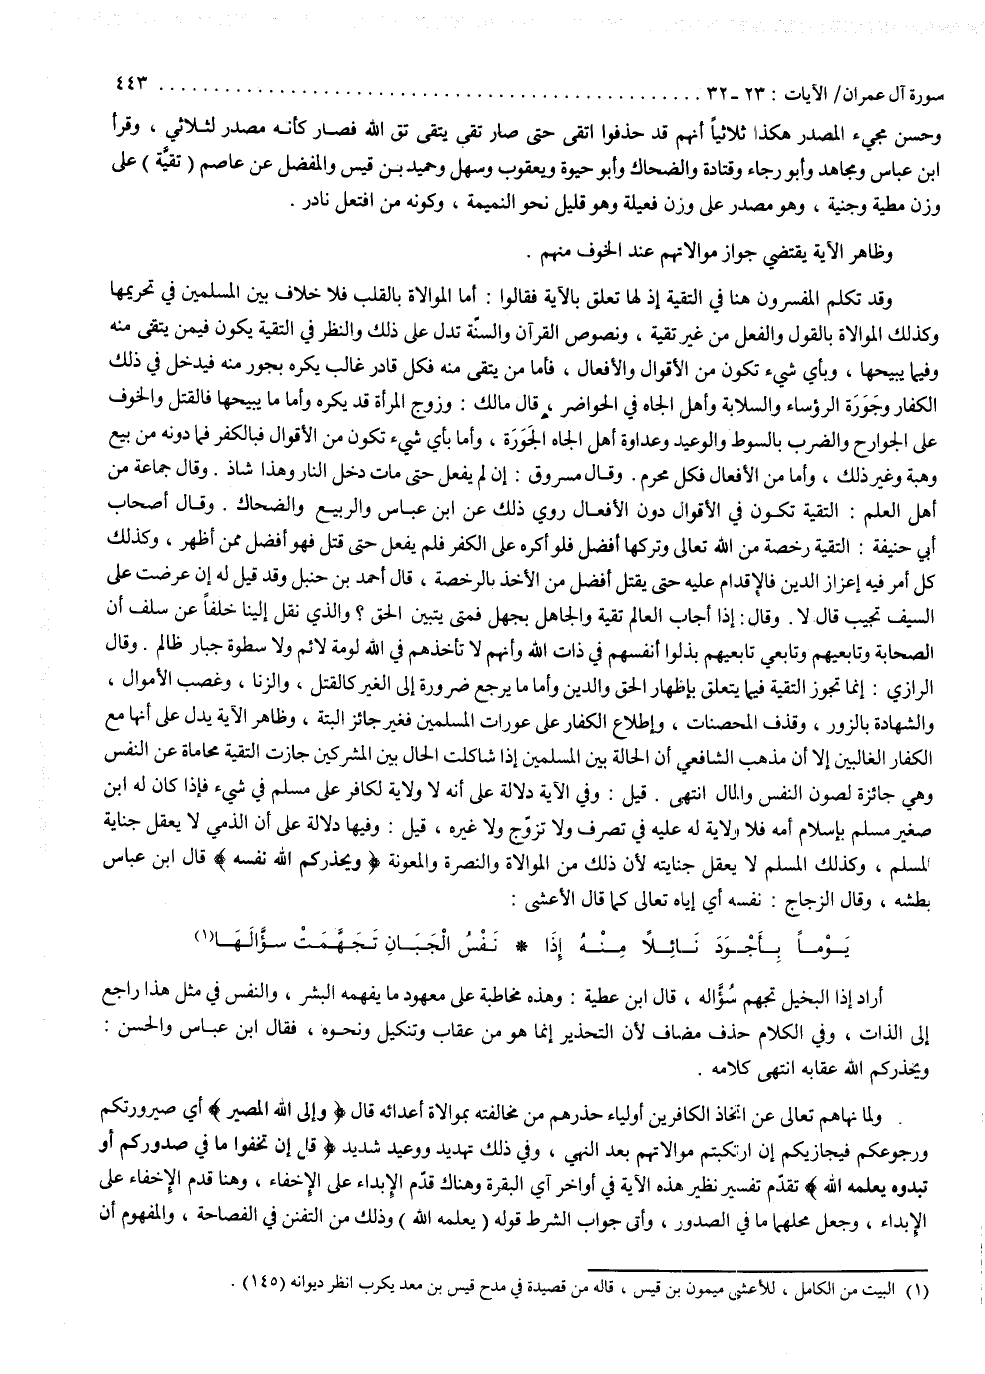 سورة آل عمران/ الآيات : ٢٣ -٣٢ ............................................ ٤٤٣
وحسن مجيء المصدر هكذا ثلاثياً أنهم قد حذفوا اتقى حتى صار تقى يتقى تق الله فصار كأنه مصدر لثلاثي ، وقرأ
ابن عباس ومجاهد وأبو رجاء وقتادة والضحاك وأبو حيوة ويعقوب وسهل وحميد بن قيس والمفضل عن عاصم ( تقيَّة ) على
وزن مطية وجنية ، وهو مصدر على وزن فعيلة وهو قليل نحو النميمة ، وكونه من افتعل نادر .
وظاهر الآية يقتضي جواز موالاتهم عند الخوف منهم .
وقد تكلم المفسرون هنا في التقية إذ لها تعلق بالآية فقالوا : أما الموالاة بالقلب فلا خلاف بين المسلمين في تحريمها
وكذلك الموالاة بالقول والفعل من غير تقية ، ونصوص القرآن والسنّة تدل على ذلك والنظر في التقية يكون فيمن يتقى منه
وفيما يبيحها ، وبأي شيء تكون من الأقوال والأفعال ، فأما من يتقى منه فكل قادر غالب يكره بجور منه فيدخل في ذلك
الكفار وجَوَرَة الرؤساء والسلابة وأهل الجاه في الحواضر ، قال مالك : وزوج المرأة قد يكره وأما ما يبيحها فالقتل والخوف
على الجوارح والضرب بالسوط والوعيد وعداوة أهل الجاه الجَوَرَة ، وأما بأي شيء تكون من الأقوال فبالكفر فما دونه من بيع
وهبة وغير ذلك ، وأما من الأفعال فكل محرم . وقال مسروق : إن لم يفعل حتى مات دخل النار وهذا شاذ . وقال جماعة من
أهل العلم : التقية تكون في الأقوال دون الأفعال روي ذلك عن ابن عباس والربيع والضحاك . وقال أصحاب
أبي حنيفة : التقية رخصة من الله تعالى وتركها أفضل فلو أكره على الكفر فلم يفعل حتى قتل فهو أفضل ممن أظهر ، وكذلك
كل أمر فيه إعزاز الدين فالإقدام عليه حتى يقتل أفضل من الأخذ بالرخصة ، قال أحمد بن حنبل وقد قيل له إن عرضت على
السيف تجيب قال لا . وقال : إذا أجاب العالم تقية والجاهل بجهل فمتى يتبين الحق ؟ والذي نقل إلينا خلفاً عن سلف أن
الصحابة وتابعيهم وتابعي تابعيهم بذلوا أنفسهم في ذات الله وأنهم لا تأخذهم في الله لومة لائم ولا سطوة جبار ظالم . وقال
الرازي : إنما تجوز التقية فيما يتعلق بإظهار الحق والدين وأما ما يرجع ضرورة إلى الغير كالقتل ، والزنا ، وغصب الأموال ،
والشهادة بالزور ، وقذف المحصنات ، وإطلاع الكفار على عورات المسلمين فغير جائز البتة ، وظاهر الآية يدل على أنها مع
الكفار الغالبين إلا أن مذهب الشافعي أن الحالة بين المسلمين إذا شاكلت الحال بين المشركين جازت التقية محاماة عن النفس
وهي جائزة لصون النفس والمال انتهى . قيل : وفي الآية دلالة على أنه لا ولاية لكافر على مسلم في شيء فإذا كان له ابن
صغير مسلم بإسلام أمه فلا ولاية له عليه في تصرف ولا تزوّج ولا غيره ، قيل : وفيها دلالة على أن الذمي لا يعقل جناية
المسلم ، وكذلك المسلم لا يعقل جنايته لأن ذلك من الموالاة والنصرة والمعونة ﴿ ويحذركم الله نفسه ﴾ قال ابن عباس
بطشه ، وقال الزجاج : نفسه أي إياه تعالى كما قال الأعشى :
يَوْماً بِأَجْوَدَ نَائِلاً مِنْهُ إِذَا * نَفْسُ الْجَبَانِ تَجَهَّمَتْ سؤَّالَهَا(١)
أراد إذا البخيل تجهم سُؤَّاله ، قال ابن عطية : وهذه مخاطبة على معهود ما يفهمه البشر ، والنفس في مثل هذا راجع
إلى الذات ، وفي الكلام حذف مضاف لأن التحذير إنما هو من عقاب وتنكيل ونحوه ، فقال ابن عباس والحسن :
ويحذركم الله عقابه انتهى كلامه .
ولما نهاهم تعالى عن اتخاذ الكافرين أولياء حذرهم من مخالفته بموالاة أعدائه قال ﴿ وإلى الله المصير ﴾ أي صيرورتكم
ورجوعكم فيجازيكم إن ارتكبتم موالاتهم بعد النهي ، وفي ذلك تهديد ووعيد شديد ﴿ قل إن تخفوا ما في صدوركم أو
تبدوه يعلمه الله ﴾ تقدّم تفسير نظير هذه الآية في أواخر آي البقرة وهناك قدّم الإبداء على الإخفاء ، وهنا قدم الإخفاء على
الإبداء ، وجعل محلهما ما في الصدور ، وأتى جواب الشرط قوله ( يعلمه الله ) وذلك من التفنن في الفصاحة ، والمفهوم أن
(١) البيت من الكامل ، للأعشى ميمون بن قيس ، قاله من قصيدة في مدح قيس بن معد يكرب انظر ديوانه (١٤٥) .